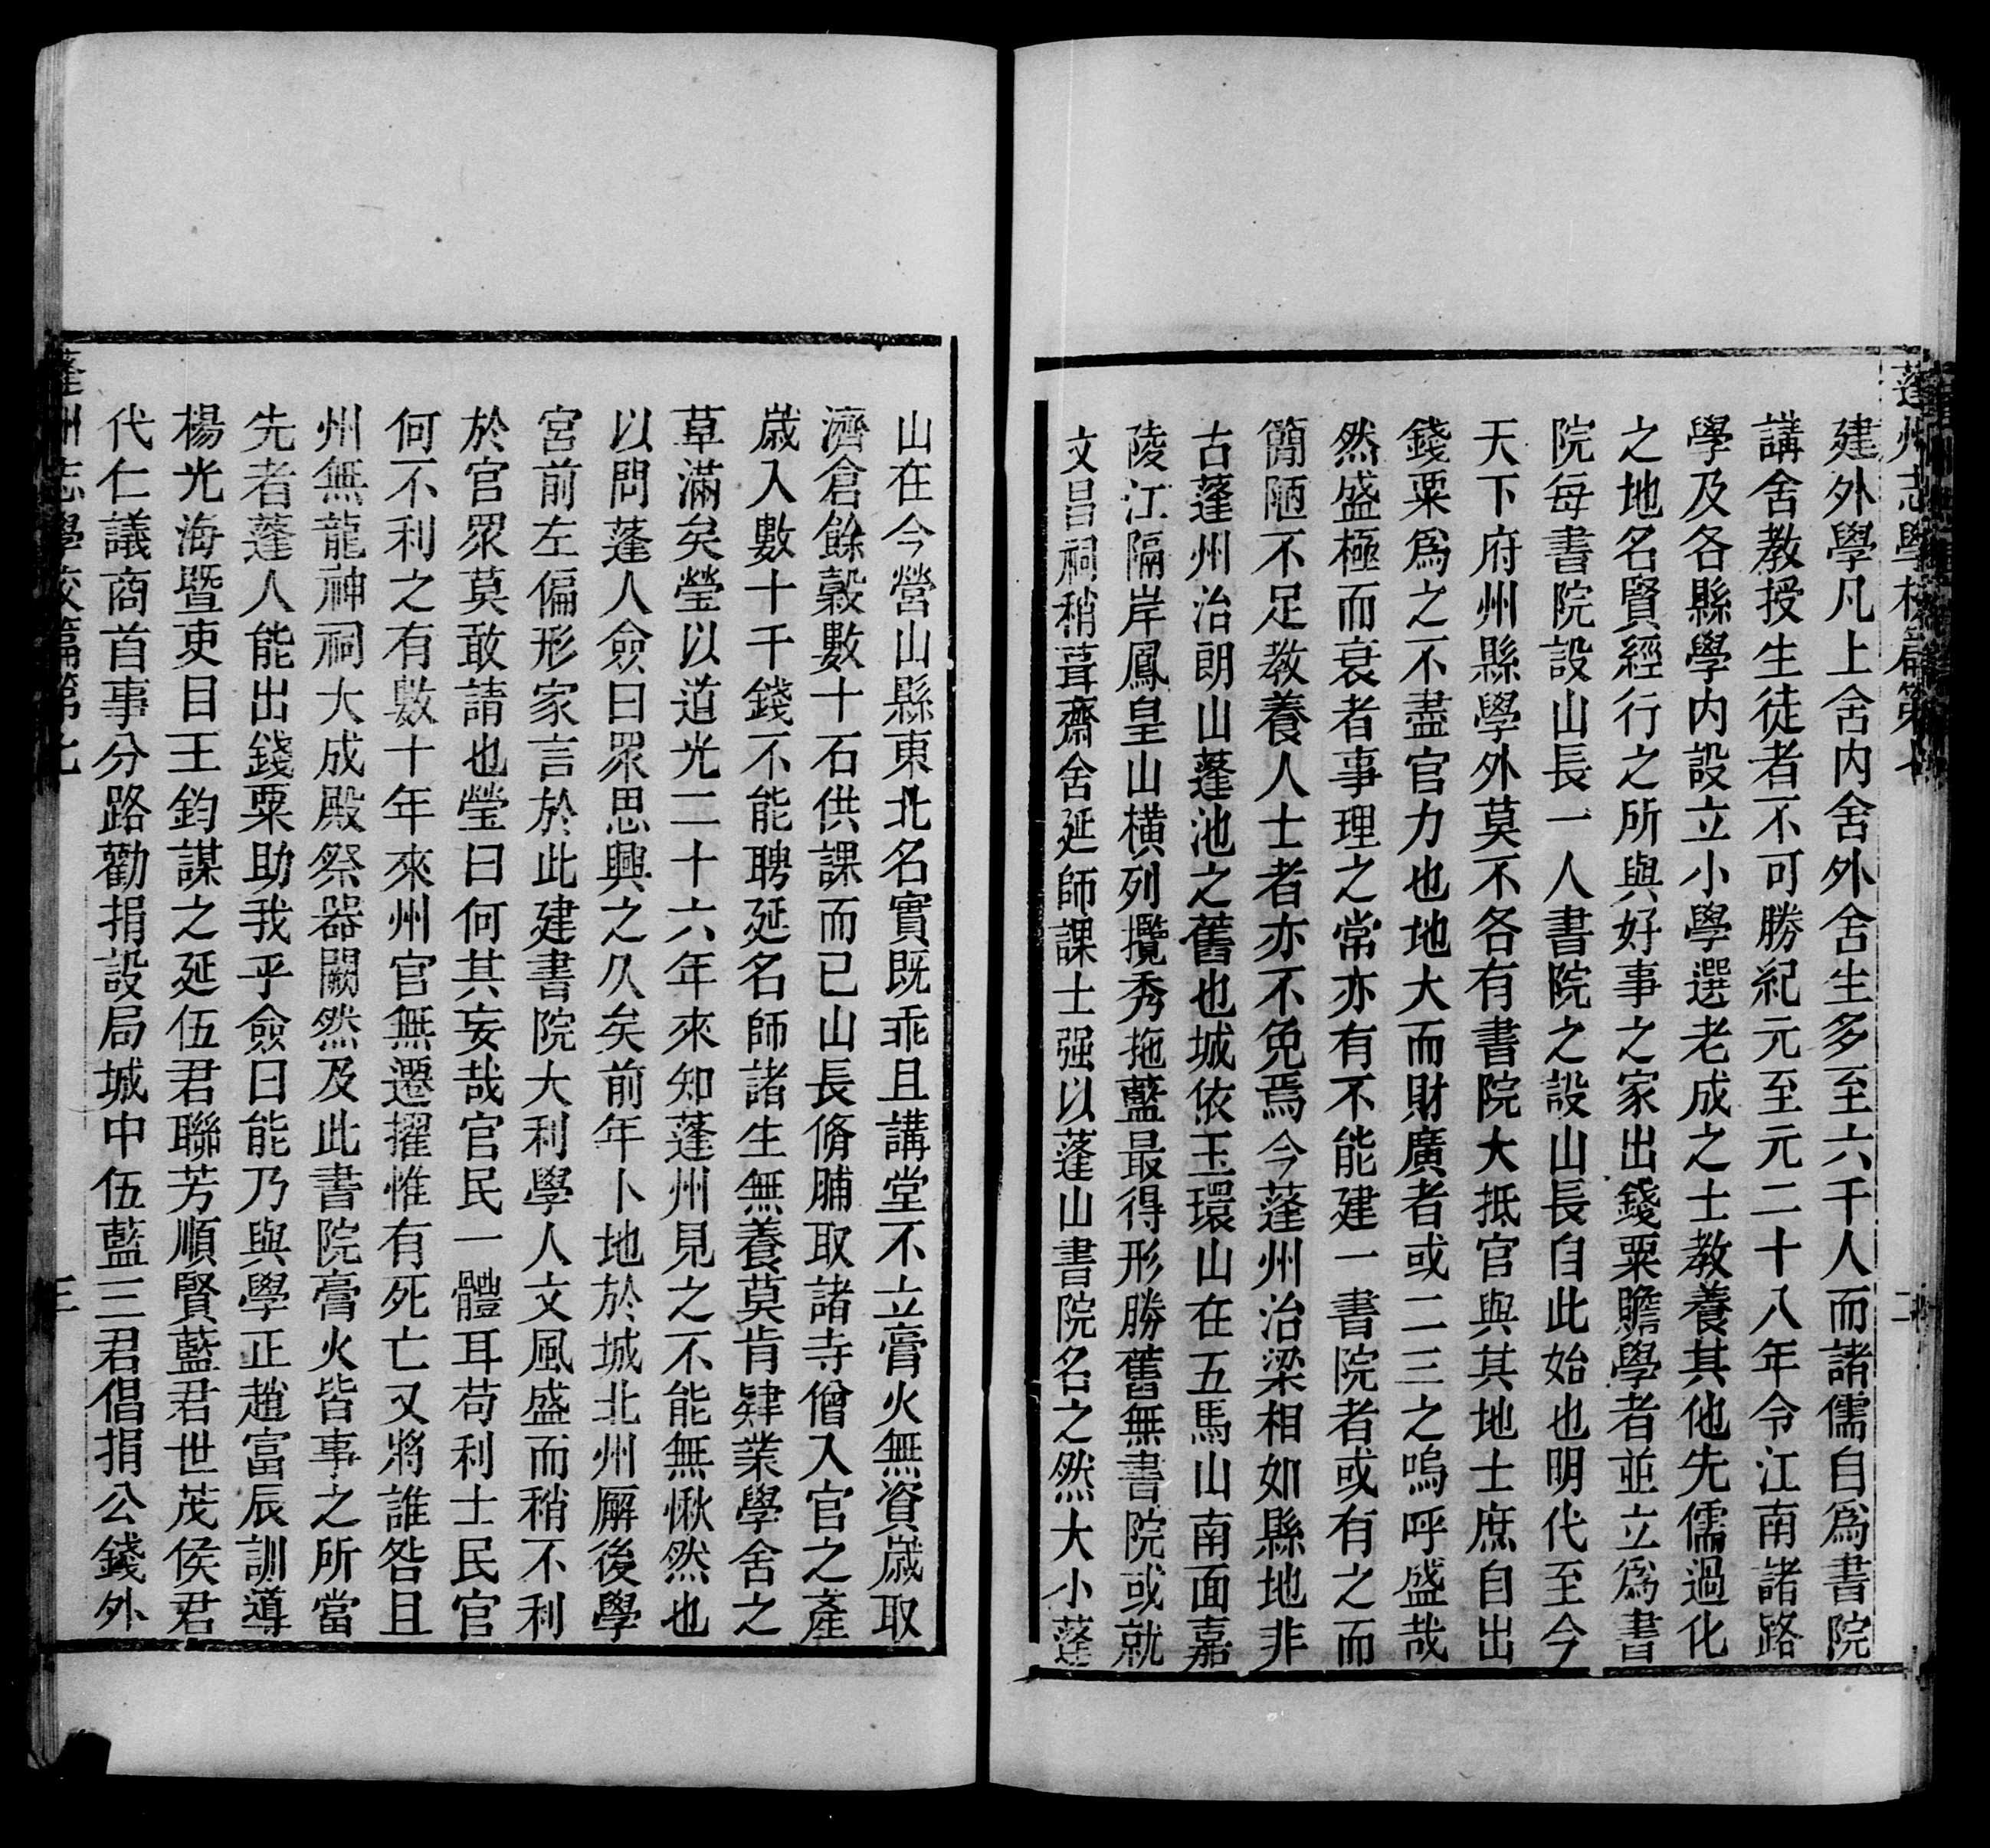 蓬州志學校篇第七
二
建外學凡上舍內舍外舍生多至六千人而諸儒自爲書院
講舍教授生徒者不可勝紀元至元二十八年令江南諸路
學及各縣學內設立小學選老成之士教養其他先儒過化
之地名賢經行之所與好事之家出錢粟贍學者並立爲書
院每書院設山長一人書院之設山長自此始也明代至今
天下府州縣學外莫不各有書院大抵官與其地士庶自出
錢粟爲之不盡官力也地大而財廣者或二三之嗚呼盛哉
然盛極而衰者事理之常亦有不能建一書院者或有之而
簡陋不足教養人士者亦不免焉今蓬州治梁相如縣地非
古蓬州治朗山蓬池之舊也城依玉環山在五馬山南面嘉
陵江隔岸鳳皇山橫列攬秀拖藍最得形勝舊無書院或就
文昌祠稍葺齋舍延師課士强以蓬山書院名之然大小蓬
山在今營山縣東北名實既乖且講堂不立膏火無資歲取
濟倉餘穀數十石供課而已山長脩脯取諸寺僧入官之產
歲入數十千錢不能聘延名師諸生無養莫肯肄業學舍之
草滿矣瑩以道光二十六年來知蓬州見之不能無愀然也
以問蓬人僉曰眾思興之久矣前年卜地於城北州廨後學
宮前左偏形家言於此建書院大利學人文風盛而稍不利
於官眾莫敢請也瑩曰何其妄哉官民一體耳苟利士民官
何不利之有數十年來州官無遷擢惟有死亡又將誰咎且
州無龍神祠大成殿祭器闕然及此書院膏火皆事之所當
先者蓬人能出錢粟助我乎僉曰能乃與學正趙富辰訓導
楊光海暨吏目王鈞謀之延伍君聯芳順賢藍君世茂侯君
代仁議商首事分路勸捐設局城中伍藍三君倡捐公錢外
蓬州志學校篇第七
三